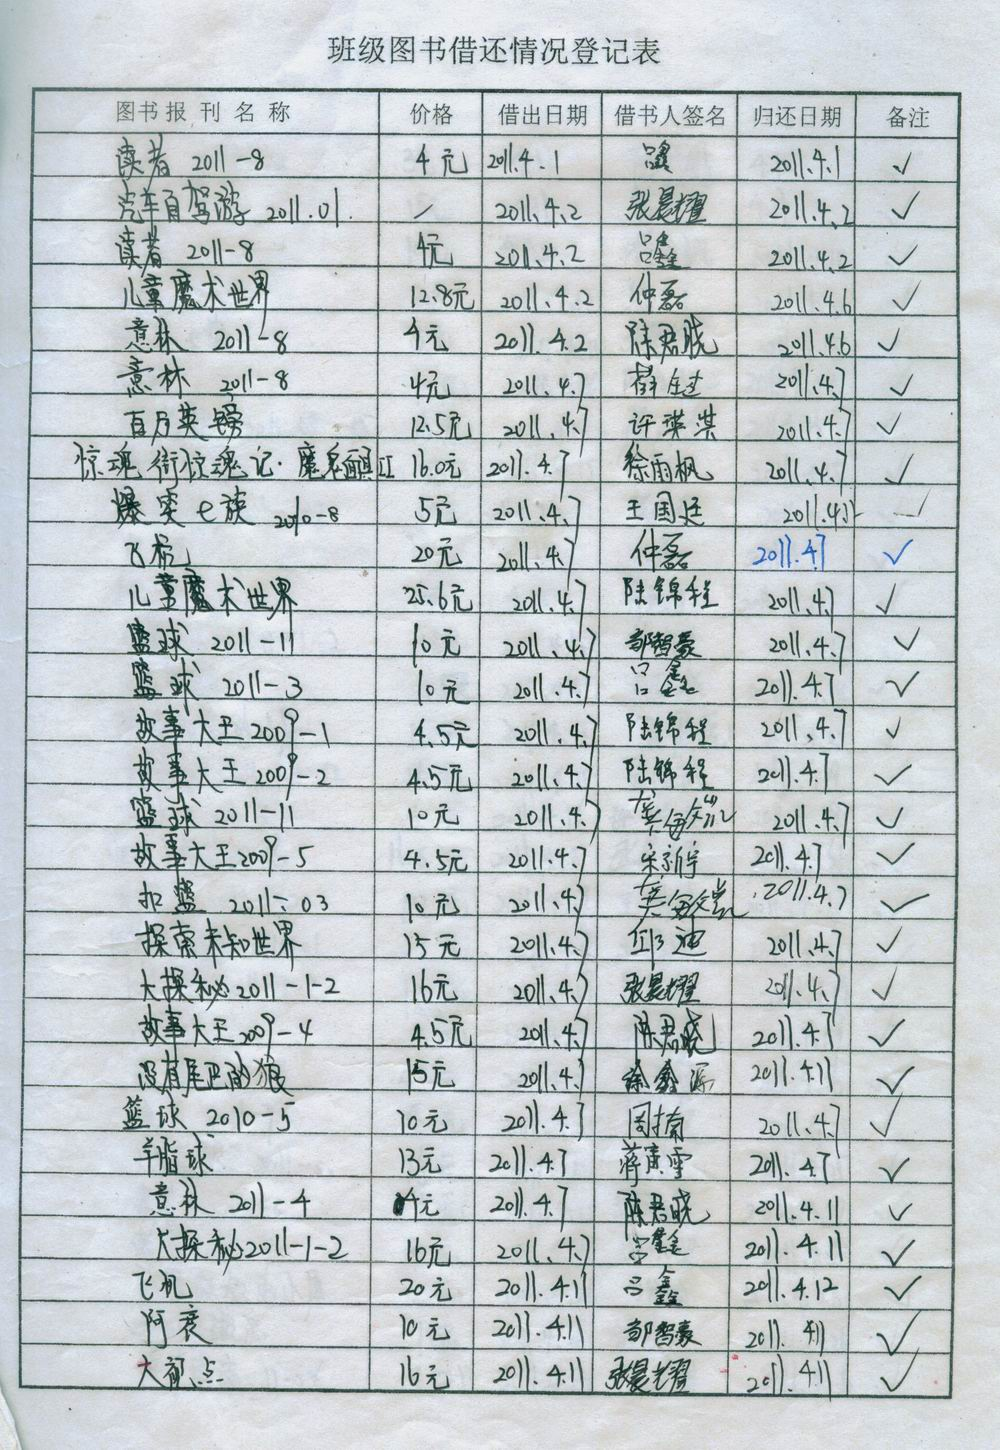 班级图书借还情况登记表
图书报刊名称 价格 借出日期 借书人签名 归还日期 备注
读者 2011-8 4元 2011.4.1 吕鑫 2011.4.1 ✓
汽车自驾游 2011.01. / 2011.4.2 张晨耀 2011.4.2 ✓
读者 2011-8 4元 2011.4.2 吕鑫 2011.4.2 ✓
儿童魔术世界 12.8元 2011.4.2 仲磊 2011.4.6 ✓
意林 2011-8 4元 2011.4.2 陈君晓 2011.4.6 ✓
意林 2011-8 4元 2011.4.7 2011.4.7 ✓
百万英镑 12.5元 2011.4.7 许琪淇 2011.4.7 ✓
惊魂街惊魂记·魔鬼面具II 16.0元 2011.4.7 徐雨枫 2011.4.7 ✓
爆笑七族 2010-8 5元 2011.4.7 王国廷 2011.4.11 ✓
飞机 20元 2011.4.7 仲磊 2011.4.7 ✓
儿童魔术世界 25.6元 2011.4.7 陆锦程 2011.4.7 ✓
篮球 2011-11 10元 2011.4.7 邹智豪 2011.4.7 ✓
篮球 2011-3 10元 2011.4.7 吕鑫 2011.4.7 ✓
故事大王2009-1 4.5元 2011.4.7 陆锦程 2011.4.7 ✓
故事大王2009-2 4.5元 2011.4.7 陆锦程 2011.4.7 ✓
篮球 2011-11 10元 2011.4.7 2011.4.7 ✓
故事大王2009-5 4.5元 2011.4.7 宋新宇 2011.4.7 ✓
扣篮 2011-03 10元 2011.4.7 2011.4.7 ✓
探索未知世界 15元 2011.4.7 邱迪 2011.4.7 ✓
大探秘2011-1-2 16元 2011.4.7 张晨耀 2011.4.7 ✓
故事大王2009-4 4.5元 2011.4.7 陈君晓 2011.4.7 ✓
没有尾巴的狼 15元 2011.4.7 徐鑫源 2011.4.11 ✓
篮球 2010-5 10元 2011.4.7 周楠 2011.4.7 ✓
羊脂球 13元 2011.4.7 蒋康雪 2011.4.7 ✓
意林 2011-4 4元 2011.4.7 陈君晓 2011.4.11 ✓
大探秘2011-1-2 16元 2011.4.7 吕鑫 2011.4.11 ✓
飞机 20元 2011.4.11 吕鑫 2011.4.12 ✓
阿衰 10元 2011.4.11 邹智豪 2011.4.11 ✓
大视点 16元 2011.4.11 张晨耀 2011.4.11 ✓